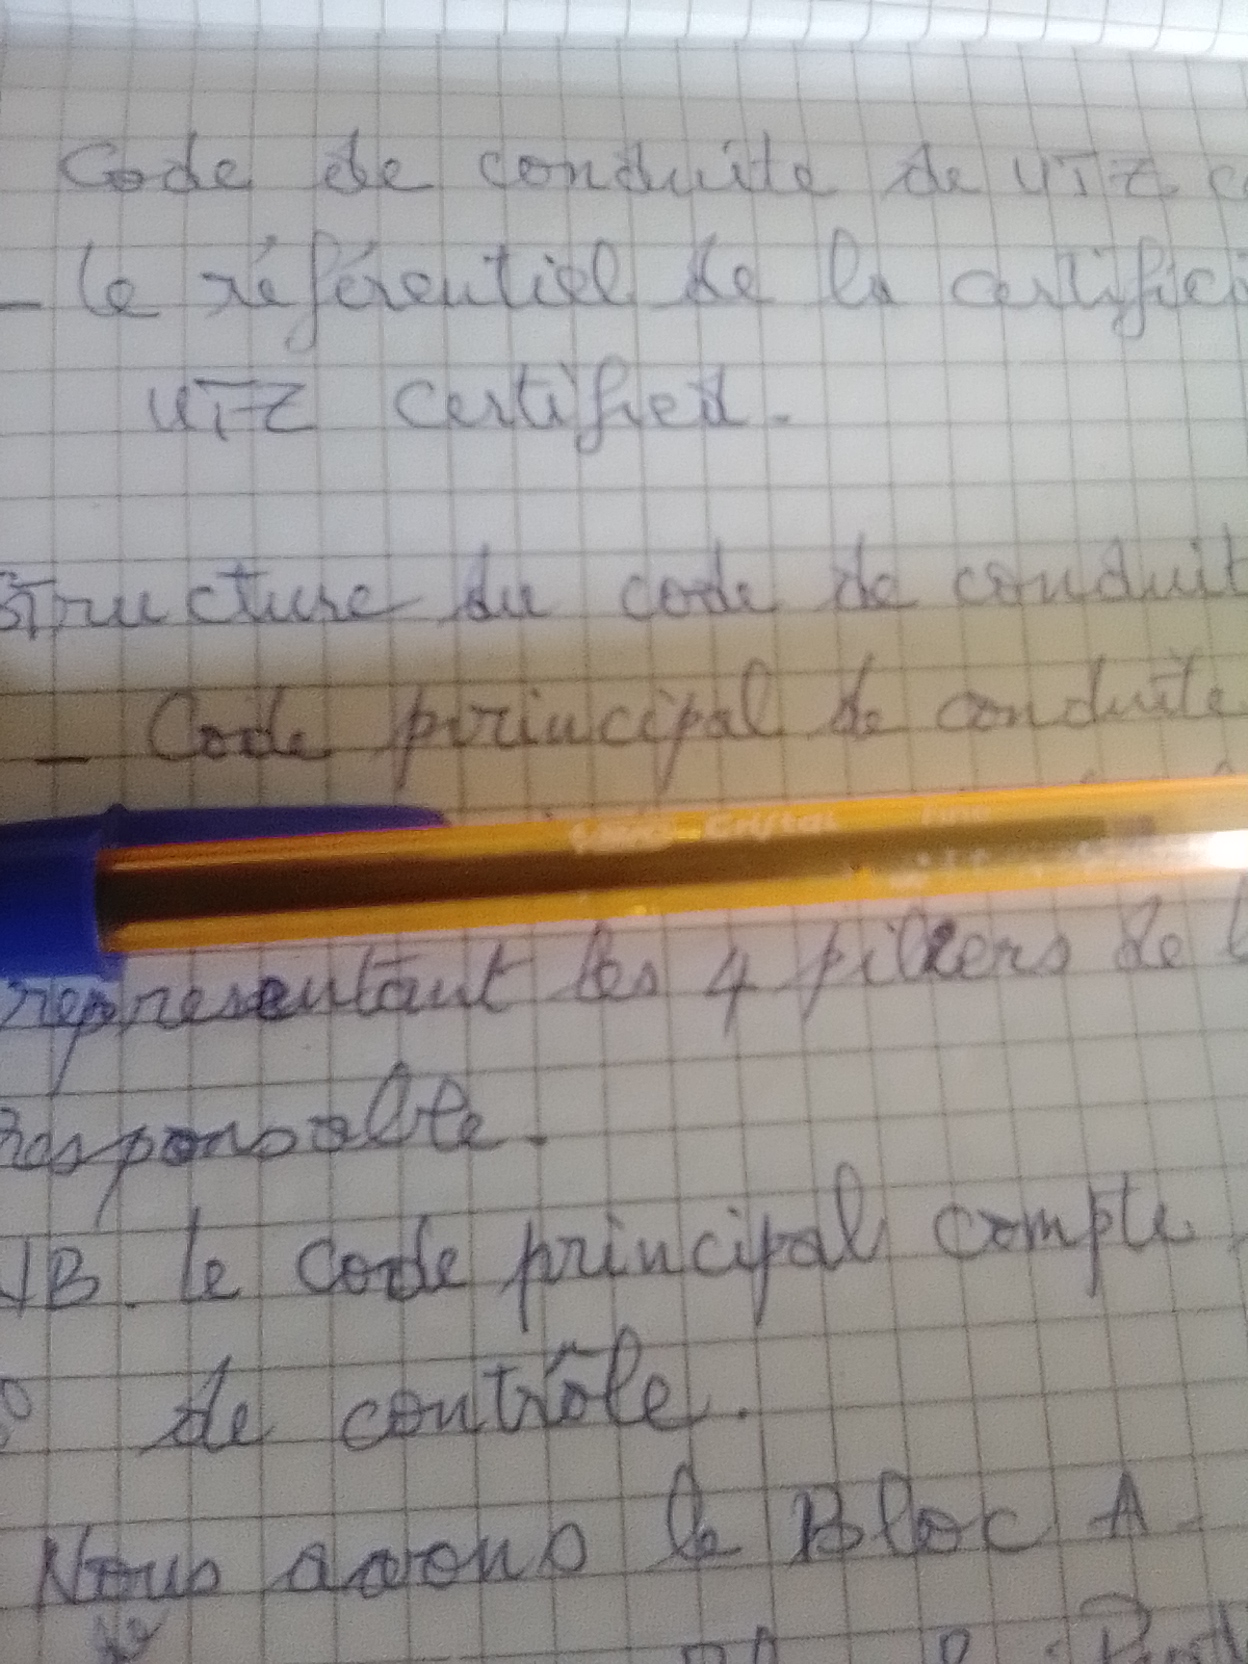 Code de conduite de UTZ
- le référentiel de la
UTZ certified.
Structure du code de
- Code principal de conduite
Cristal Fine
représentant les 4 piliers de
responsable.
NB. le Code principal compte
de contrôle.
Nous avons le Bloc A-